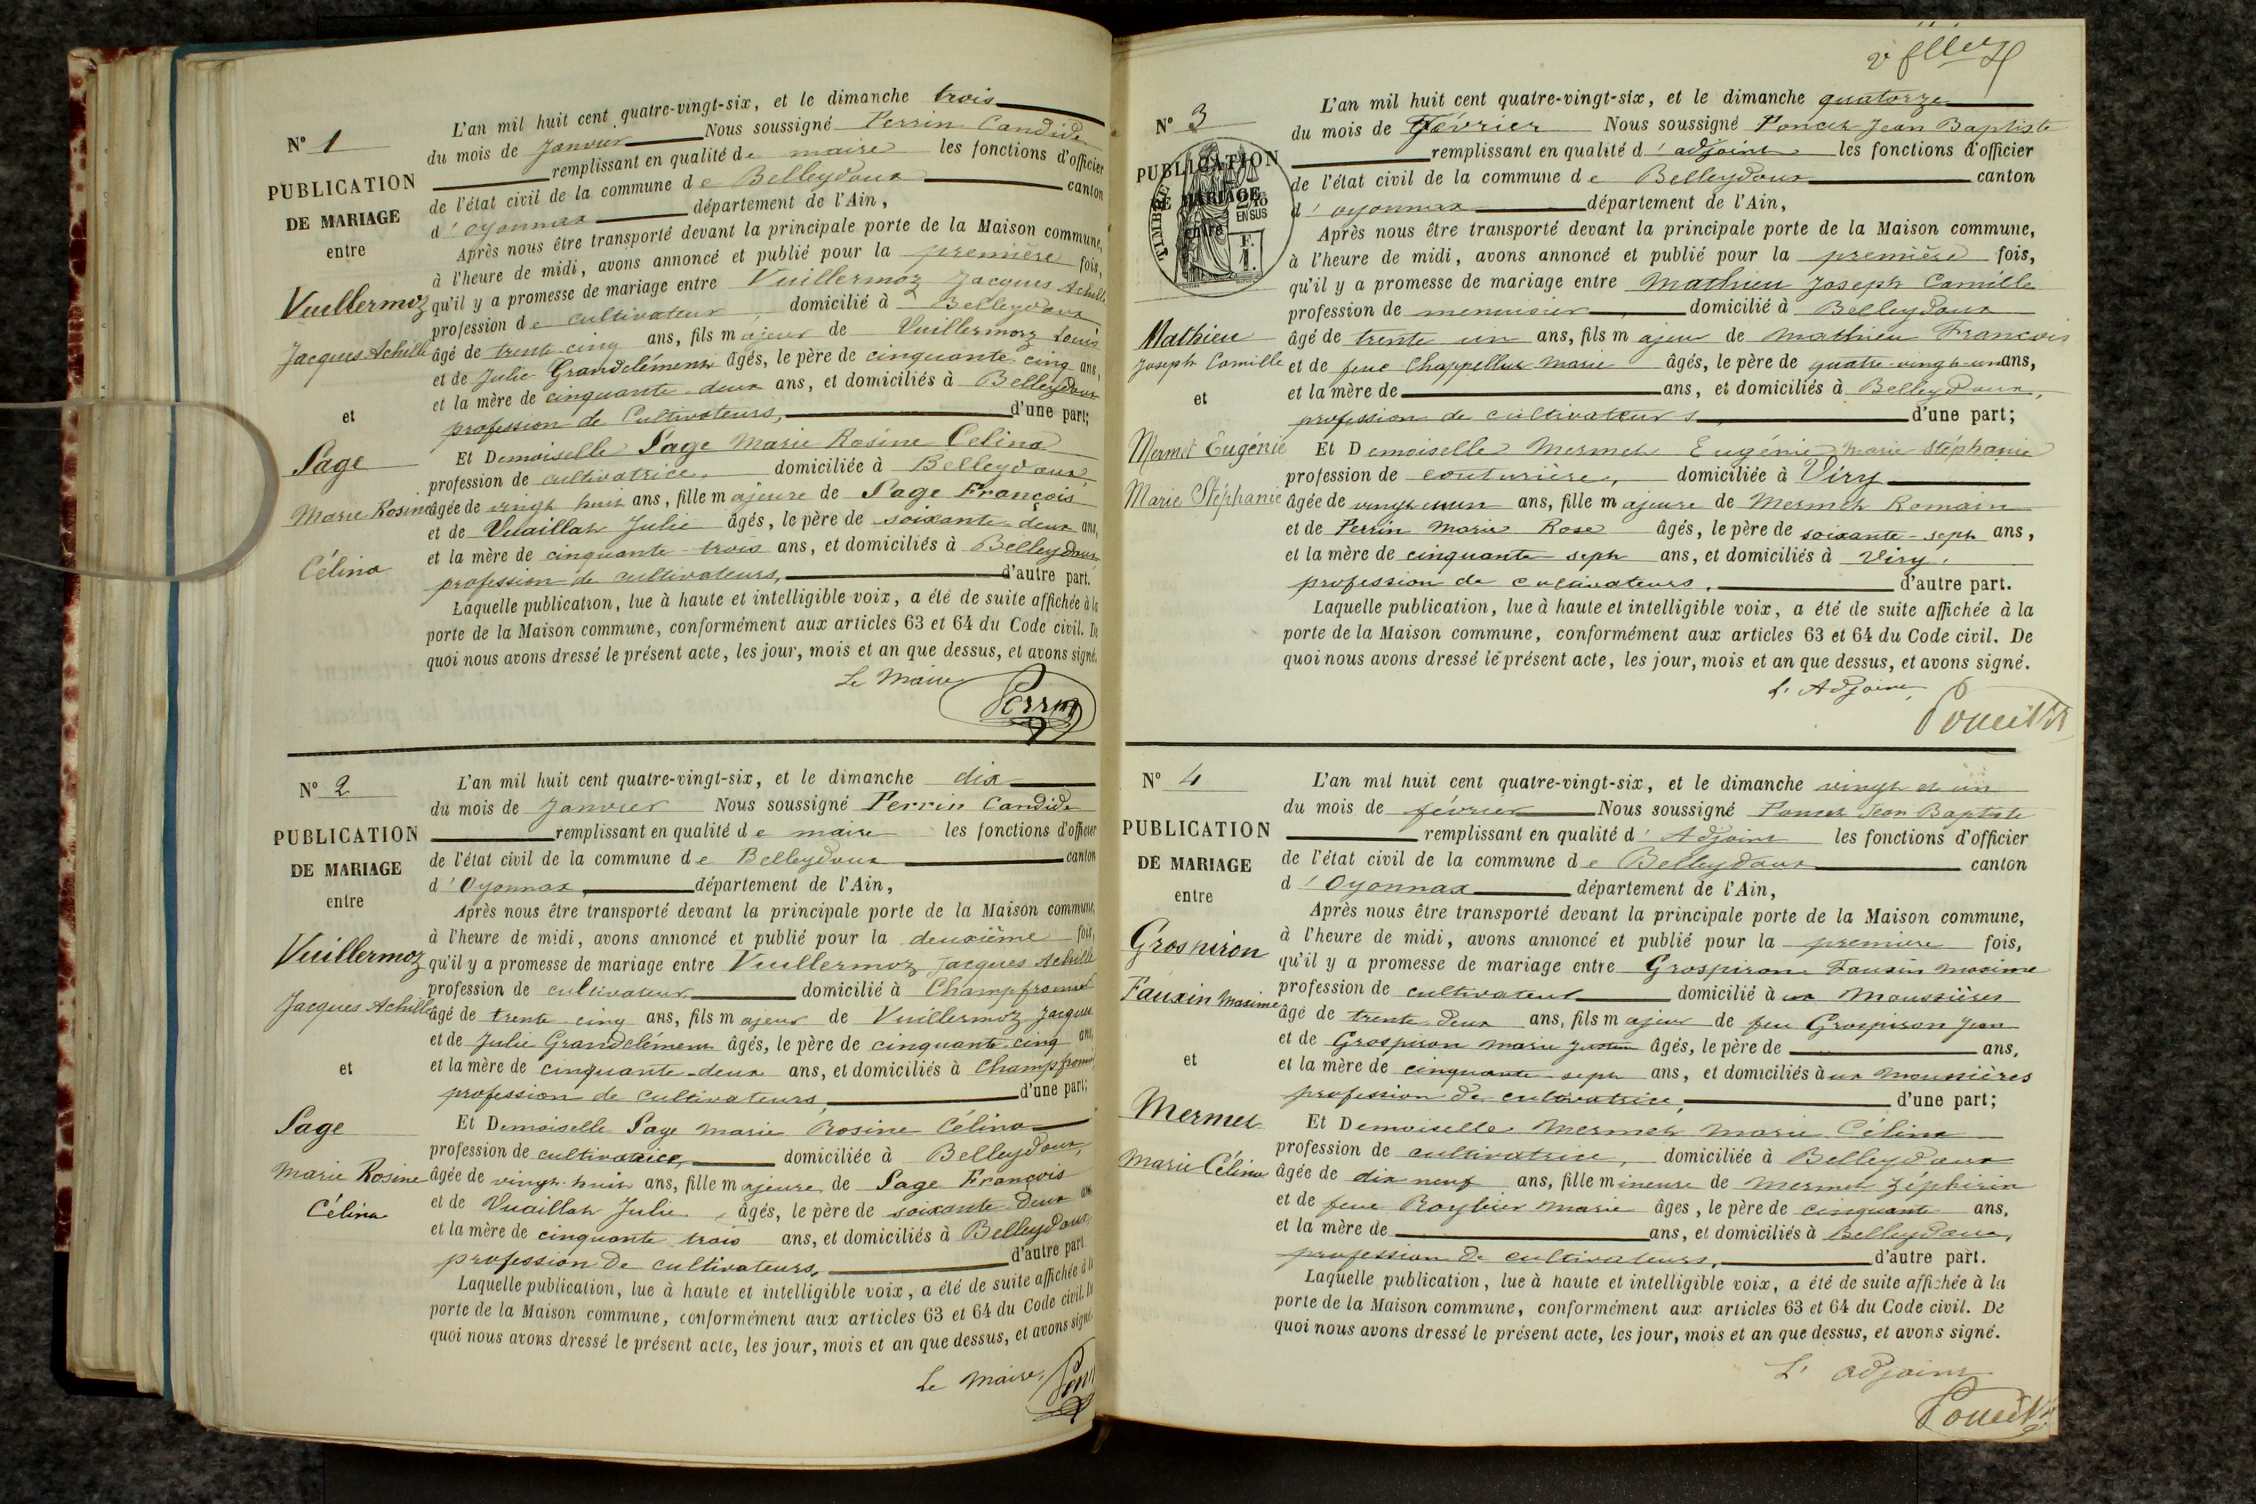 N° 1
PUBLICATION
DE MARIAGE
entre
Vuillermoz
Jacques Achille
et
Sage
Marie Rosine
Célina
L'an mil huit cent quatre-vingt-six, et le dimanche trois
du mois de Janvier Nous soussigné Perrin Candide
remplissant en qualité de maire les fonctions d'officier
de l'état civil de la commune de Belleydoux canton
d'oyonnax département de l'Ain,
Après nous être transporté devant la principale porte de la Maison commune,
à l'heure de midi, avons annoncé et publié pour la première fois,
qu'il y a promesse de mariage entre Vuillermoz Jacques Achille
profession de cultivateur, domicilié à Belleydoux
âgé de trente cinq ans, fils majeur de Vuillermoz Louis
et de Julie Grandclément âgés, le père de cinquante-cinq ans,
et la mère de cinquante-deux ans, et domiciliés à Belleydoux
profession de Cultivateurs, d'une part;
Et Demoiselle Sage Marie Rosine Celina
profession de cultivatrice, domiciliée à Belleydoux,
âgée de vingt huit ans, fille majeure de Sage François
et de Vuaillat Julie âgés, le père de soixante-deux ans,
et la mère de cinquante-trois ans, et domiciliés à Belleydoux,
profession de cultivateurs, d'autre part.
Laquelle publication, lue à haute et intelligible voix, a été de suite affichée à la
porte de la Maison commune, conformément aux articles 63 et 64 du Code civil. De
quoi nous avons dressé le présent acte, les jour, mois et an que dessus, et avons signé.
Le Maire
Perrin
N° 2
PUBLICATION
DE MARIAGE
entre
Vuillermoz
Jacques Achille
et
Sage
Marie Rosine
Célina
L'an mil huit cent quatre-vingt-six, et le dimanche dix
du mois de Janvier Nous soussigné Perrin Candide
remplissant en qualité de maire les fonctions d'officier
de l'état civil de la commune de Belleydoux canton
d'Oyonnax, département de l'Ain,
Après nous être transporté devant la principale porte de la Maison commune,
à l'heure de midi, avons annoncé et publié pour la deuxième fois,
qu'il y a promesse de mariage entre Vuillermoz Jacques Achille
profession de cultivateur domicilié à Champfromier
âgé de trente-cinq ans, fils majeur de Vuillermoz Jacques
et de Julie Grandclément âgés, le père de cinquante-cinq ans,
et la mère de cinquante-deux ans, et domiciliés à Champfromier
profession de cultivateurs, d'une part;
Et Demoiselle Sage Marie Rosine Célina
profession de cultivatrice, domiciliée à Belleydoux,
âgée de vingt-huit ans, fille majeure de Sage François
et de Vuaillat Julie, âgés, le père de soixante-deux ans
et la mère de cinquante trois ans, et domiciliés à Belleydoux,
profession de cultivateurs, d'autre part
Laquelle publication, lue à haute et intelligible voix, a été de suite affichée à la
porte de la Maison commune, conformément aux articles 63 et 64 du Code civil. De
quoi nous avons dressé le présent acte, les jour, mois et an que dessus, et avons signé.
Le Maire,
N° 3
PUBLICATION
DE MARIAGE
entre
TIMBRE
EN SUS
F.
1.
Mathieu
Joseph Camille
et
Mermet Eugénie
Marie Stéphanie
L'an mil huit cent quatre-vingt-six, et le dimanche quatorze
du mois de Février Nous soussigné Poncet Jean Baptiste
remplissant en qualité d'adjoint les fonctions d'officier
de l'état civil de la commune de Belleydoux canton
d'oyonnax département de l'Ain,
Après nous être transporté devant la principale porte de la Maison commune,
à l'heure de midi, avons annoncé et publié pour la première fois,
qu'il y a promesse de mariage entre Mathieu Joseph Camille
profession de menuisier, domicilié à Belleydoux
âgé de trente un ans, fils majeur de Mathieu François
et de feue Chappelluz Marie âgés, le père de quatre-vingt-un ans,
et la mère de ans, et domiciliés à Belleydoux,
profession de cultivateurs d'une part;
Et Demoiselle Mermet Eugénie Marie Stéphanie
profession de couturière, domiciliée à Viry
âgée de vingt-un ans, fille majeure de Mermet Romain
et de Perrin Marie Rose âgés, le père de soixante-sept ans,
et la mère de cinquante sept ans, et domiciliés à Viry,
profession de cultivateurs, d'autre part.
Laquelle publication, lue à haute et intelligible voix, a été de suite affichée à la
porte de la Maison commune, conformément aux articles 63 et 64 du Code civil. De
quoi nous avons dressé le présent acte, les jour, mois et an que dessus, et avons signé.
L'Adjoint,
N° 4
PUBLICATION
DE MARIAGE
entre
Grospiron
Fauxin Maxime
et
Mermet
Marie Célina
L'an mil huit cent quatre-vingt-six, et le dimanche vingt et un
du mois de février Nous soussigné Poncet Jean Baptiste
remplissant en qualité d'Adjoint les fonctions d'officier
de l'état civil de la commune de Belleydoux canton
d'Oyonnax département de l'Ain,
Après nous être transporté devant la principale porte de la Maison commune,
à l'heure de midi, avons annoncé et publié pour la première fois,
qu'il y a promesse de mariage entre Grospiron Fausin Maxime
profession de cultivateur domicilié à ux Moussières
âgé de trente-deux ans, fils majeur de feu Grospiron Jean
et de Grospiron Marie Justine âgés, le père de ans,
et la mère de cinquante-sept ans, et domiciliés à ux Moussières
profession de cultivatrice, d'une part;
Et Demoiselle Mermet Marie Célina
profession de cultivatrice, domiciliée à Belleydoux
âgée de dix neuf ans, fille mineure de Mermet Zéphirin
et de feue Roybier Marie âges, le père de cinquante ans,
et la mère de ans, et domiciliés à Belleydoux,
profession de cultivateurs, d'autre part.
Laquelle publication, lue à haute et intelligible voix, a été de suite affichée à la
porte de la Maison commune, conformément aux articles 63 et 64 du Code civil. De
quoi nous avons dressé le présent acte, les jour, mois et an que dessus, et avons signé.
L'adjoint